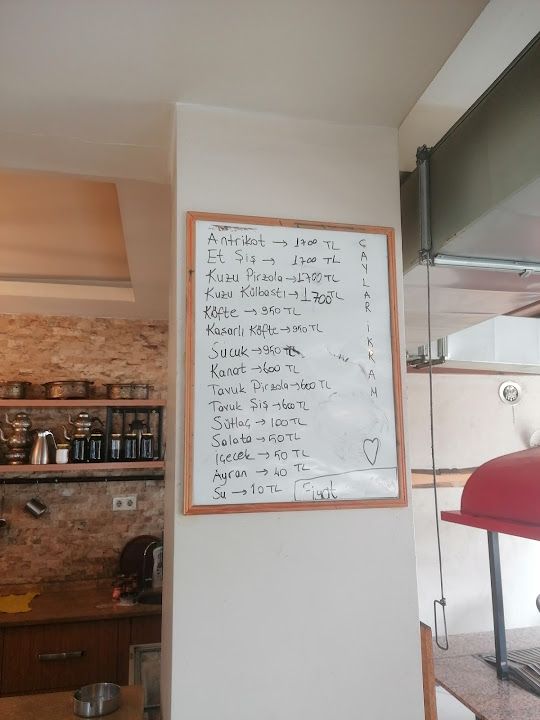 Antrikot → 1700 TL
Et Şiş → 1700 TL
Kuzu Pirzola → 1700 TL
Kuzu Külbastı → 1700 TL
Köfte → 950 TL
Kaşarlı Köfte → 950 TL
Sucuk → 950 TL
Kanat → 600 TL
Tavuk Pirzola → 600 TL
Tavuk Şiş → 600 TL
Sütlaç → 100 TL
Salata → 50 TL
İçecek → 50 TL
Ayran → 40 TL
Su → 10 TL
Fiyat
ÇAYLAR İKRAM